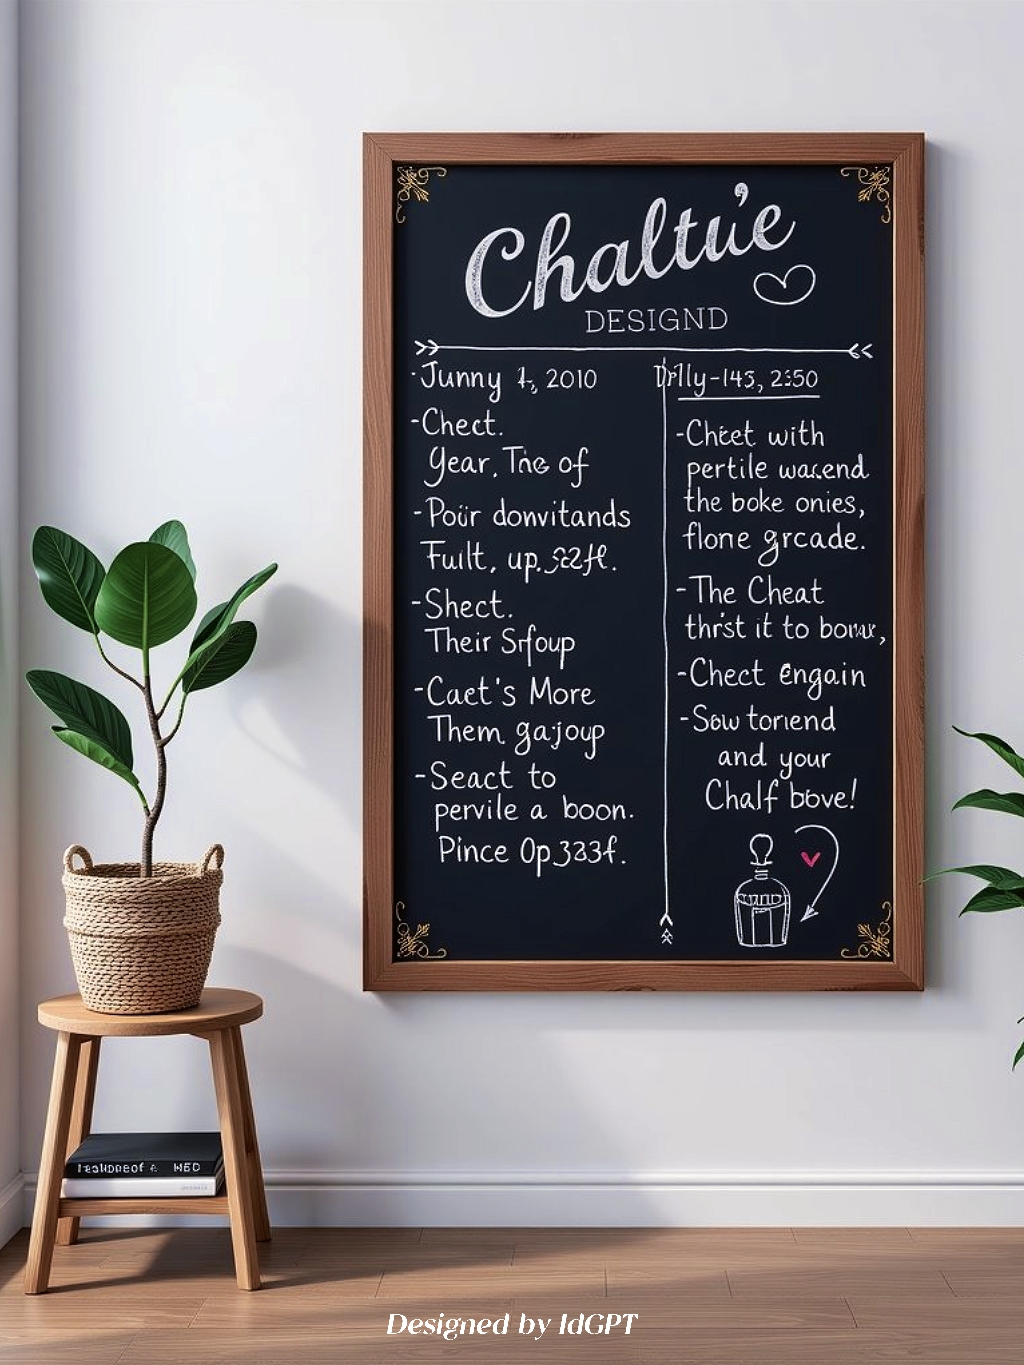 Chaltu'e
DESIGND
Junny 1, 2010
-Chect.
Year. The of
-Poir donvitands
Fuilt, up.
-Shect.
Their Srfoup
-Caet's More
Them gajoup
-Seact to
pervile a boon.
Pince Op.333f.
-143, 2:50
-Cheet with
pertile warend
the boke onies,
flone grcade.
-The Cheat
thrist it to
-Chect engain
-Sow toriend
and your
Chalf bove!
Designed by IdGPT